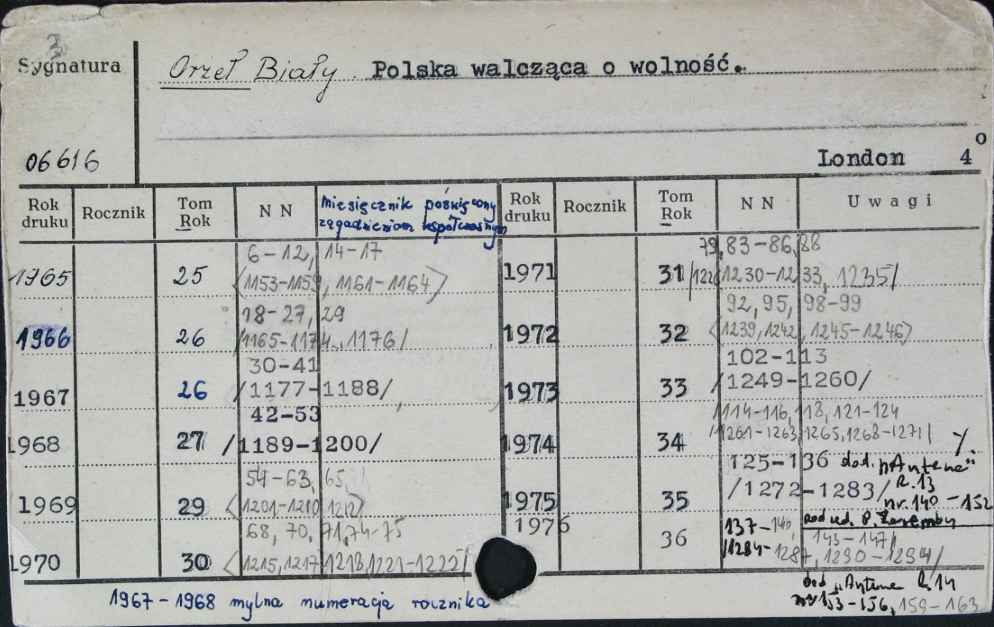 3
Sygnatura
Orzeł Biały. Polska walcząca o wolność.
06616
London 4º
Rok druku Rocznik Tom Rok N N miesięcznik poświęcony zagadnieniom współczesnym Rok druku Rocznik Tom Rok N N Uwagi
6-12, 14-17
1965 25 <1153-1159, 1161-1164>
18-27, 29
1966 26 /1165-1174, 1176/
30-41
1967 26 /1177-1188/
42-53
1968 27 /1189-1200/
54-63, 65,
1969 29 <1201-1210, 1212>
68, 70, 71, 74-75
1970 30 <1215, 1217, 1218, 1221-1222/
79, 83-86, 88
1971 31 /1226, 1230-1233, 1235/
92, 95, 98-99
1972 32 <1239, 1242, 1245-1246>
102-113
1973 33 /1249-1260/
114-116, 118, 121-124
1974 34 /1261-1263, 1265, 1268-1271/ ./.
125-136 dod. "Antena"
1975 35 /1272-1283/ R.13
nr. 140-152
pod red. P. Zaremby
1976 36 137-140, 143-147/
/1284-1287, 1290-1294/
dod. "Antena R. 14
nr 153-156, 159-163
1967-1968 mylna numeracja rocznika